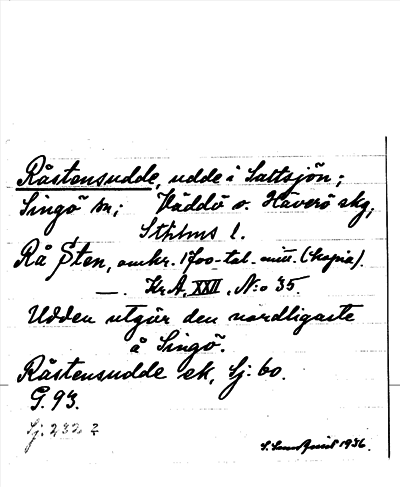 Råstensudde, udde i Saltsjön;
Singö sn; Väddö o. Häverö skg;
Sthlms l.
Rå Sten, omkr. 1700-tal. mitt. (kopia).
—. Kr.A. XXII, N:o 35.
Udden utgör den nordligaste
å Singö.
Råstensudde ek, Sj: 60.
G. 93.
Sj: 232 ?
1936.